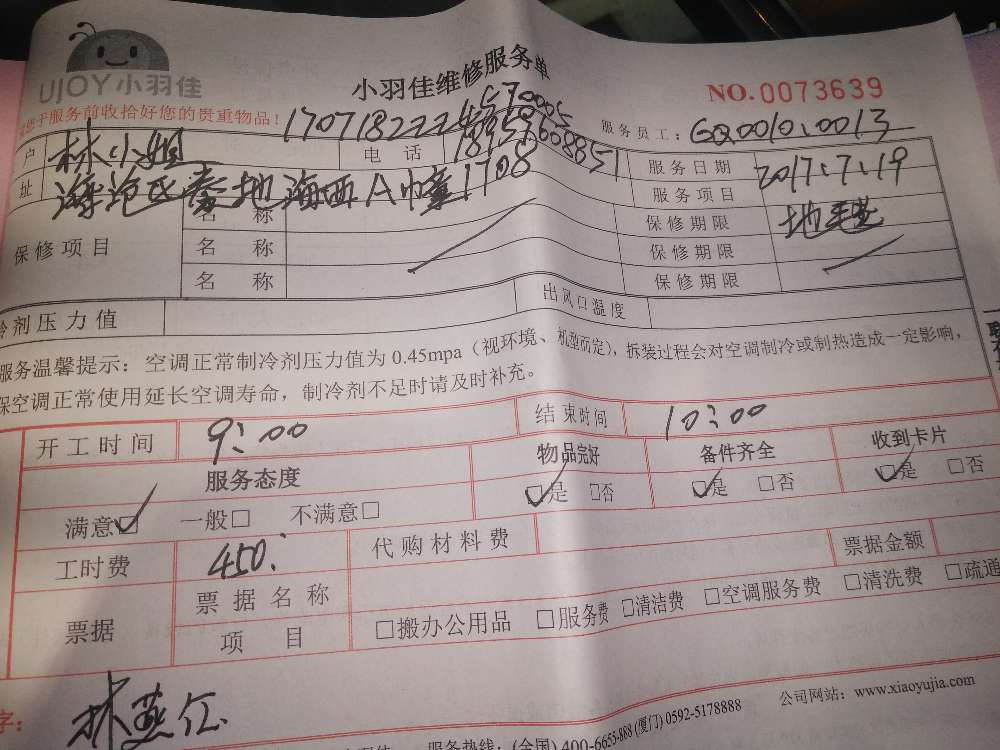 UJOY小羽佳
小羽佳维修服务单
NO.0073639
于服务前收拾好您的贵重物品！
服务员工：GQ0010.0013
户 林小姐 电话 服务日期 2017.7.19
址 海沧区泰地海西A幢1708 服务项目 地毯
保修项目 名称 保修期限
名称 保修期限
名称 保修期限
冷剂压力值 出风口温度
服务温馨提示：空调正常制冷剂压力值为 0.45mpa（视环境、机型而定），拆装过程会对空调制冷或制热造成一定影响，
保空调正常使用延长空调寿命，制冷剂不足时请及时补充。
开工时间 9:00 结束时间 10:00
服务态度 物品完好 备件齐全 收到卡片
满意☑ 一般□ 不满意□ ☑是 □否 ☑是 □否 ☑是 □否
工时费 450. 代购材料费 票据金额
票据 票据名称 □搬办公用品 □服务费 □清洁费 □空调服务费 □清洗费 □疏通
项目
字：林燕
公司网站：www.xiaoyujia.com
服务热线：(全国) 400-6655-888 (厦门) 0592-5178888